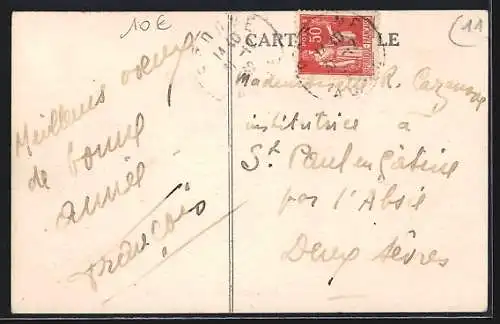 10€
11
CARTE POSTALE
50
Meilleurs voeux
de bonne
année
François
Mademoiselle R. Cazenove
institutrice à
St Paul en Gâtine
par l'Absie
Deux Sèvres